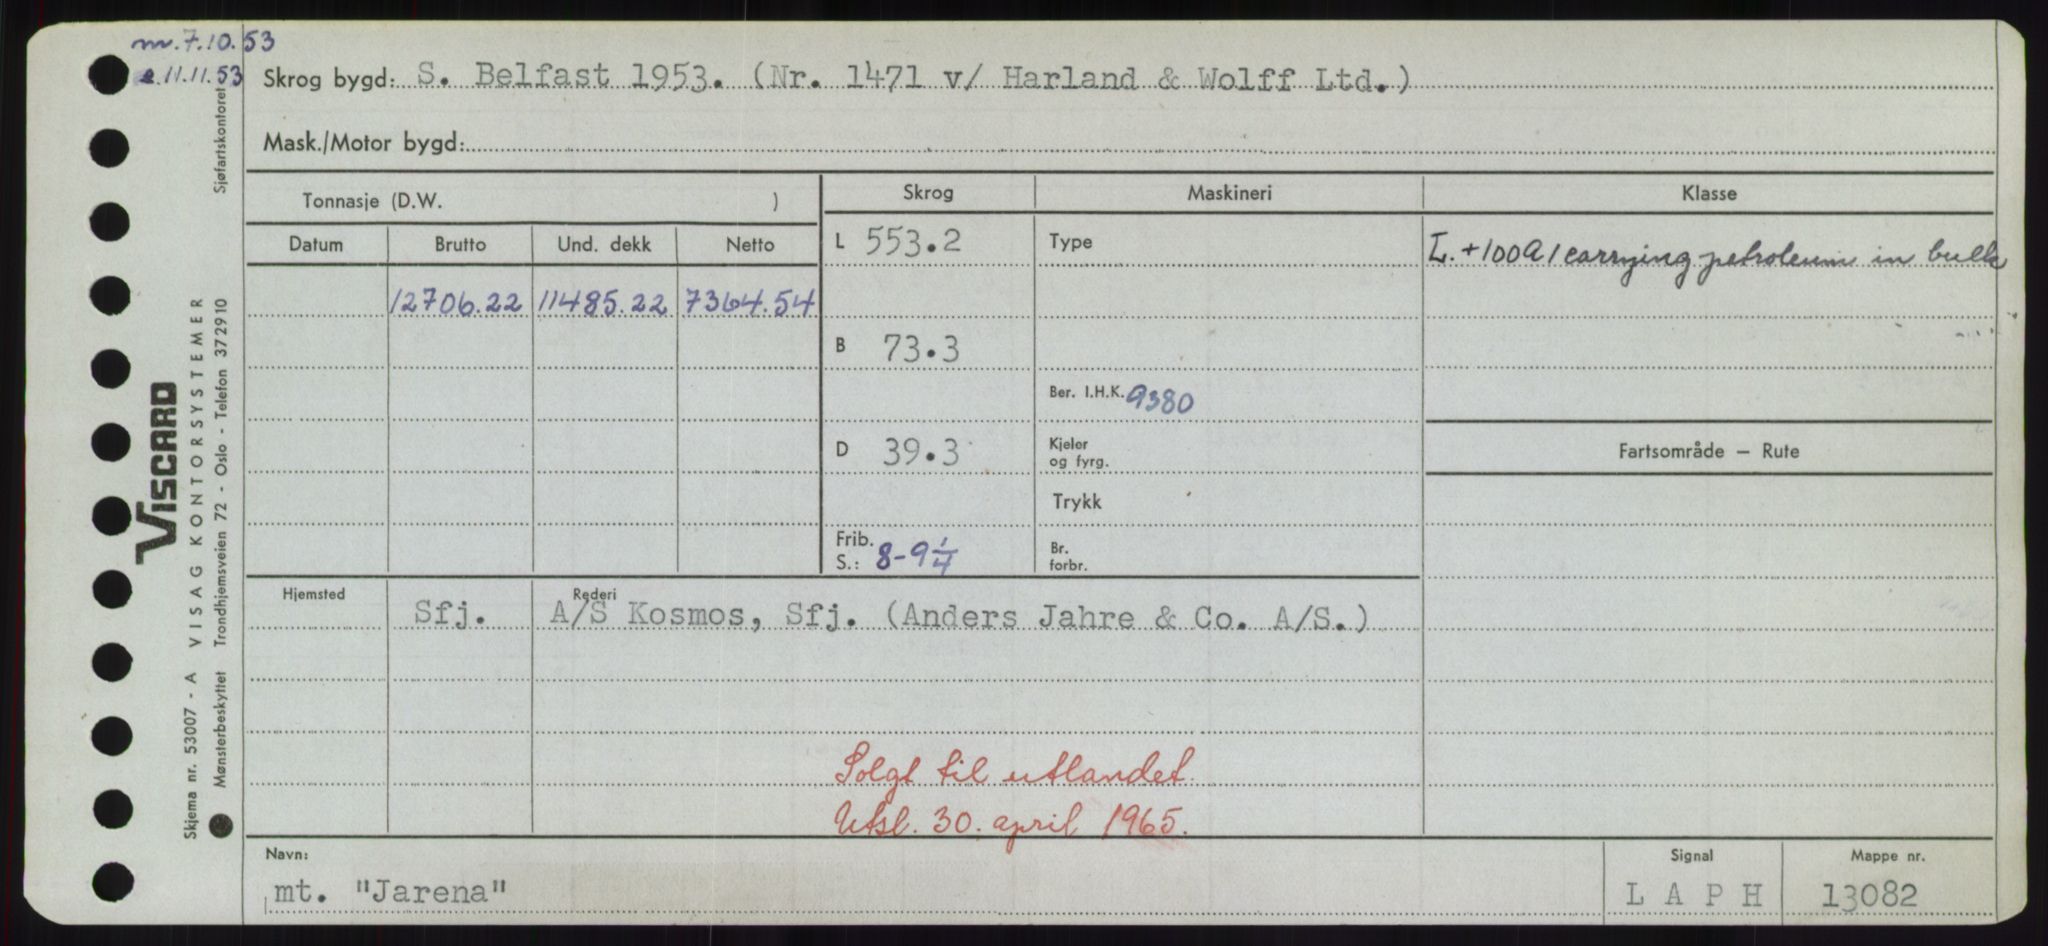 m. 7.10.53
e. 11.11.53
Skrog bygd: S. Belfast 1953. (Nr. 1471 v/ Harland & Wolff Ltd.)
Mask./Motor bygd:
Tonnasje (D.W. )
Skrog
Maskineri
Klasse
Datum
Brutto
Und. dekk
Netto
L 553.2
Type
L. +100A1 carrying petroleum in bulk
12706.22 11485.22 7364.54
B 73.3
Ber. I.H.K. 9380
D 39.3
Kjeler
og fyrg.
Fartsområde — Rute
Trykk
Frib.
S.: 8-9 1/4
Br.
forbr.
Hjemsted
Rederi
Sfj. A/S Kosmos, Sfj. (Anders Jahre & Co. A/S.)
Solgt til utlandet.
Utsl. 30. april 1965.
Navn:
mt. "Jarena"
Signal
L A P H
Mappe nr.
13082
VISCARD
Skjema nr. 53007 - A VISAG KONTORSYSTEMER
Mønsterbeskyttet Trondhjemsveien 72 - Oslo - Telefon 372910
Sjøfartskontoret